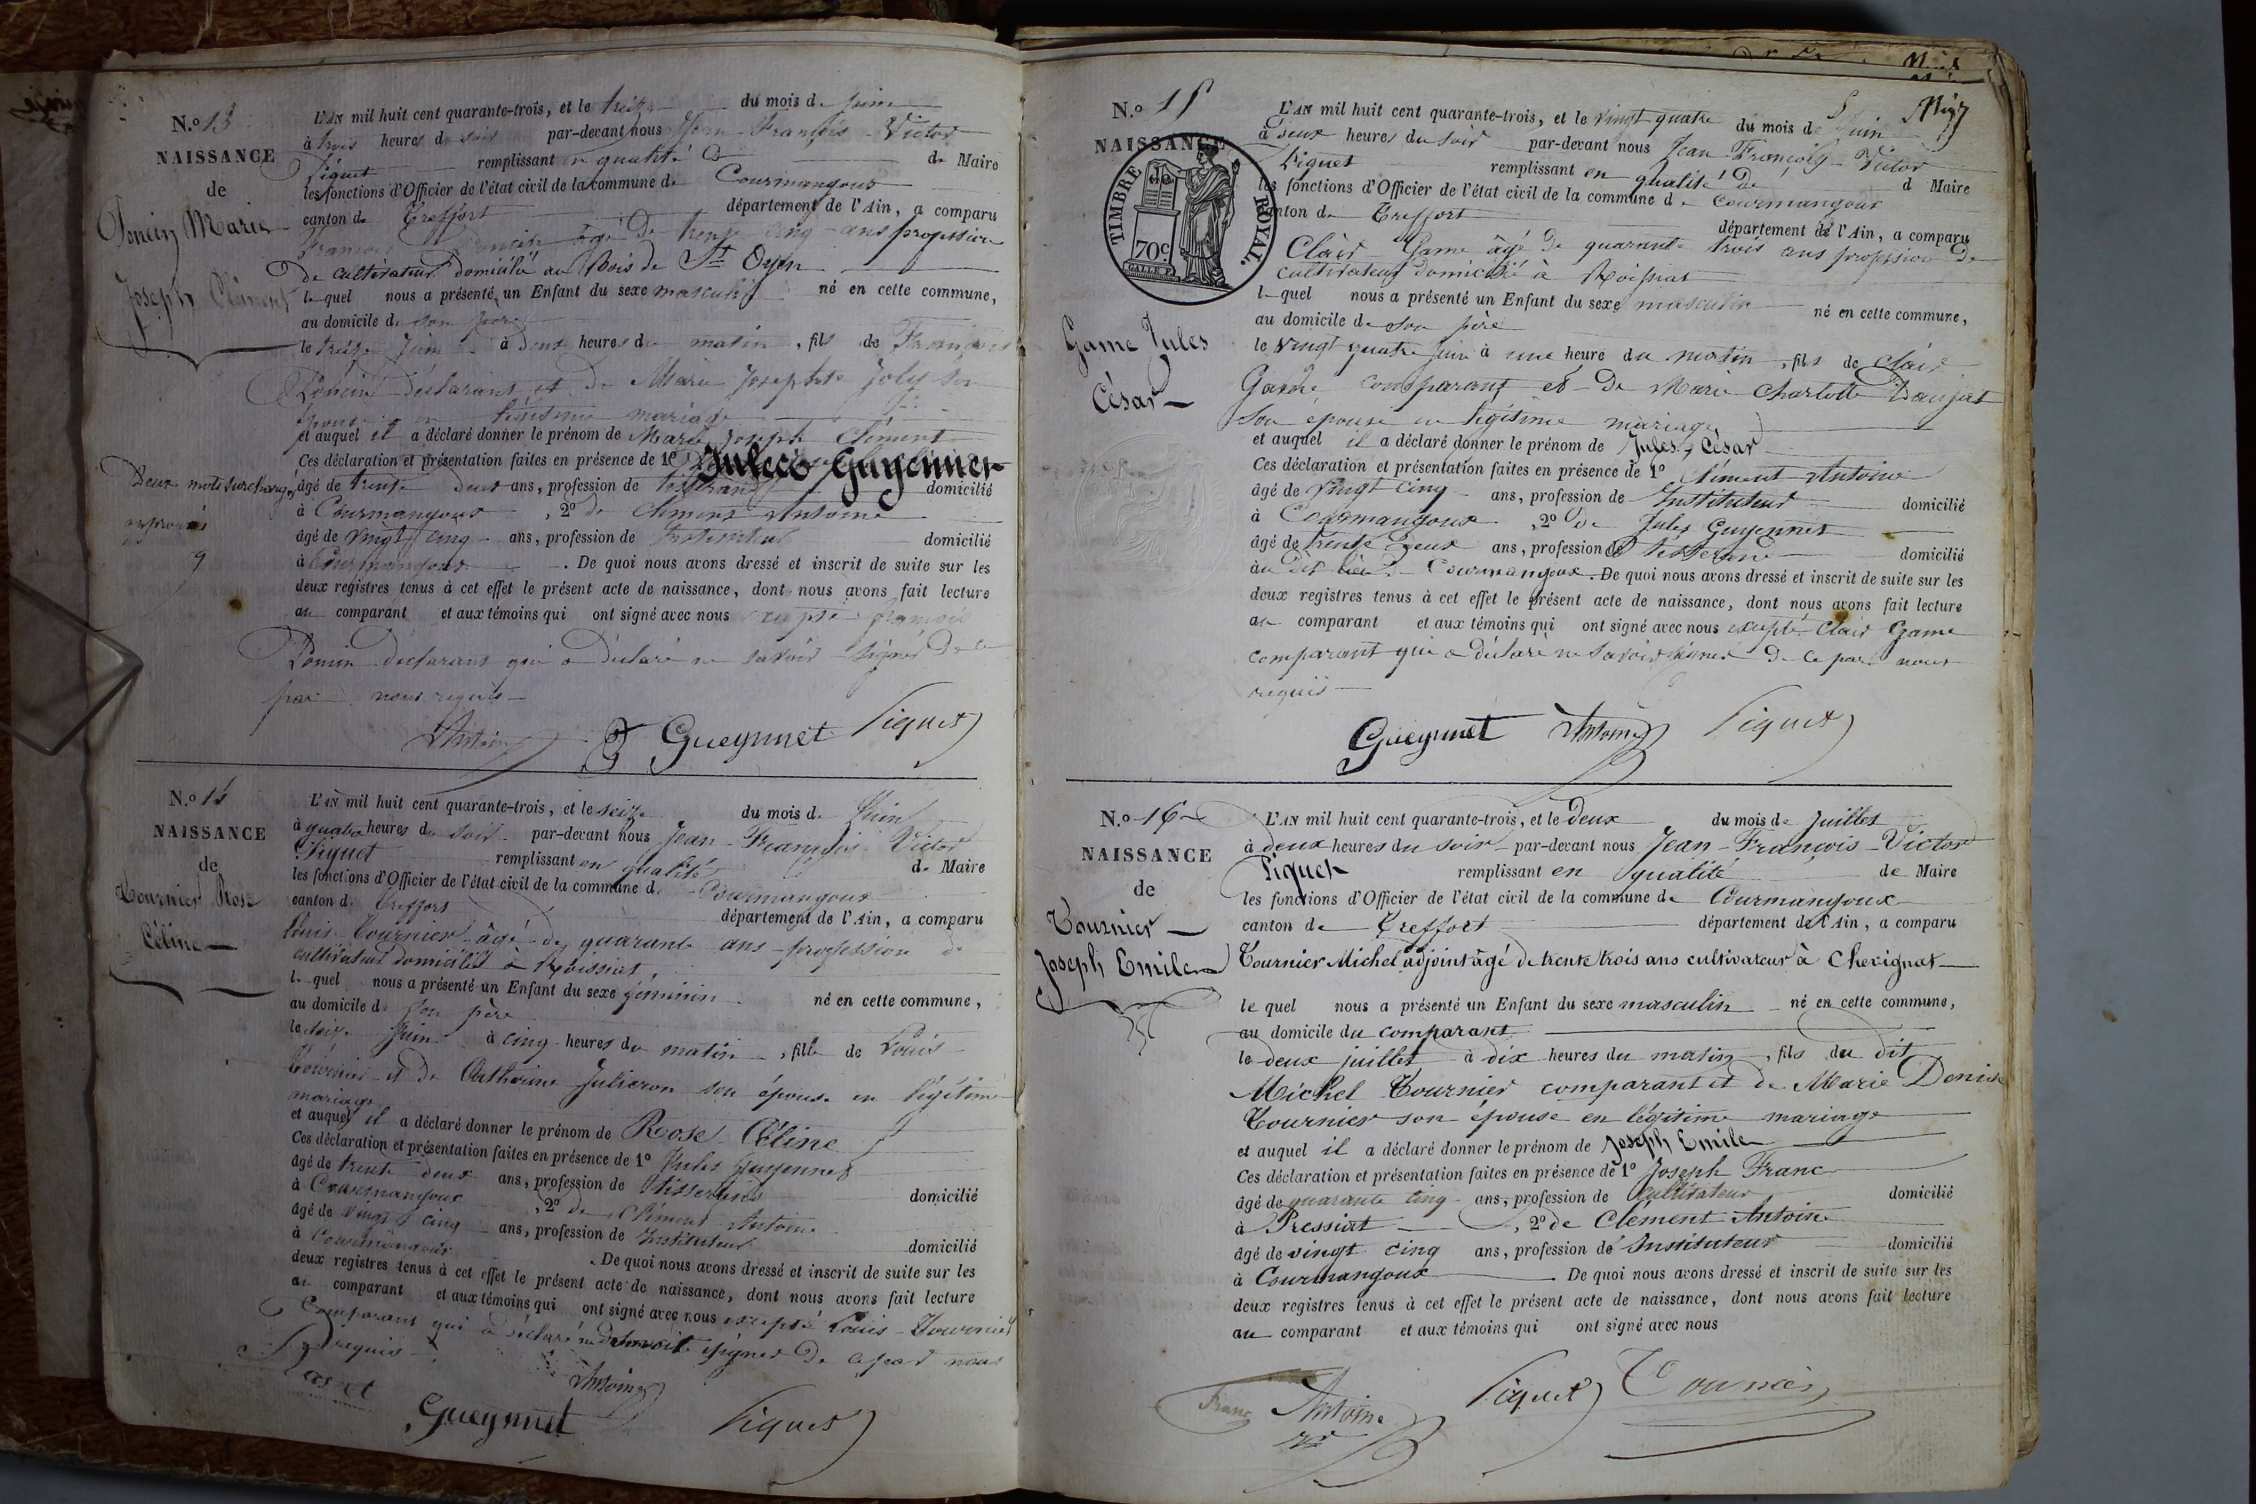 N.o 13
NAISSANCE
de
Poncin Marie
Joseph Clément
L'AN mil huit cent quarante-trois, et le treize du mois de juin
à trois heures du soir par-devant nous Jean-François-Victor
Piquet remplissant en qualité de Maire
les fonctions d'Officier de l'état civil de la commune de Courmangoux
canton de Treffort département de l'Ain, a comparu
François Poncin âgé de trente cinq ans profession
de cultivateur domicilié au Bois de St Oyen
lequel nous a présenté un Enfant du sexe masculin né en cette commune,
au domicile de son père
le treize juin à deux heures du matin, fils de François
Poncin déclarant et de Marie Josephte Joly son
épouse en légitime mariage
et auquel il a déclaré donner le prénom de Marie Joseph Clément
Ces déclaration et présentation faites en présence de 1o Jules Guyennet
Deux mots surchargés
approuvés
âgé de trente deux ans, profession de tisserand domicilié
à Courmangoux, 2o de Clément Antoine
âgé de vingt cinq ans, profession de Instituteur domicilié
à Courmangoux. De quoi nous avons dressé et inscrit de suite sur les
deux registres tenus à cet effet le présent acte de naissance, dont nous avons fait lecture
au comparant et aux témoins qui ont signé avec nous excepté François
Poncin déclarant qui a déclaré ne savoir signer de ce
par nous requis
Antoine Gueynnet Piquet
N.o 14
NAISSANCE
de
Tournier Rose
Céline
L'AN mil huit cent quarante-trois, et le seize du mois de Juin
à quatre heures du soir par-devant nous Jean-François-Victor
Piquet remplissant en qualité de Maire
les fonctions d'Officier de l'état civil de la commune de Courmangoux
canton de Treffort département de l'Ain, a comparu
Louis Tournier âgé de quarante ans profession de
cultivateur domicilié à Roissiat,
lequel nous a présenté un Enfant du sexe féminin né en cette commune,
au domicile de son père
le seize Juin à cinq heures du matin, fille de Louis
Tournier et de Catherine Julieron son épouse en légitime
mariage
et auquel il a déclaré donner le prénom de Rose Céline
Ces déclaration et présentation faites en présence de 1o Jules Guyennet
âgé de trente deux ans, profession de tisserand domicilié
à Courmangoux, 2o de Clément Antoine
âgé de vingt cinq ans, profession de Instituteur domicilié
à Courmangoux. De quoi nous avons dressé et inscrit de suite sur les
deux registres tenus à cet effet le présent acte de naissance, dont nous avons fait lecture
au comparant et aux témoins qui ont signé avec nous excepté Louis Tournier
comparant qui a déclaré ne savoir signer de ce par nous
requis
Antoine
Gueynnet Piquet
N.o 15
NAISSANCE
TIMBRE ROYAL.
70c.
Game Jules
César
L'AN mil huit cent quarante-trois, et le vingt quatre du mois de Juin
à deux heures du soir par-devant nous Jean-François-Victor
Piquet remplissant en qualité de d Maire
les fonctions d'Officier de l'état civil de la commune de Courmangoux
canton de Treffort département de l'Ain, a comparu
Clair Game âgé de quarante trois ans profession de
cultivateur domicilié à Roissiat
lequel nous a présenté un Enfant du sexe masculin né en cette commune,
au domicile de son père
le vingt quatre Juin à une heure du matin, fils de Clair
Game comparant et de Marie Charlotte Daujat
son épouse en légitime mariage,
et auquel il a déclaré donner le prénom de Jules César
Ces déclaration et présentation faites en présence de 1o Clément Antoine
âgé de vingt cinq ans, profession de Instituteur domicilié
à Courmangoux, 2o de Jules Guyennet
âgé de trente deux ans, profession de tisserand domicilié
au dit lieu de Courmangoux. De quoi nous avons dressé et inscrit de suite sur les
deux registres tenus à cet effet le présent acte de naissance, dont nous avons fait lecture
au comparant et aux témoins qui ont signé avec nous excepté Clair Game
comparant qui a déclaré ne savoir signer de ce par nous
requis
Gueynnet Antoine Piquet
N.o 16
NAISSANCE
de
Tournier
Joseph Emile
L'AN mil huit cent quarante-trois, et le deux du mois de juillet
à deux heures du soir par-devant nous Jean-François-Victor
Piquet remplissant en qualité de Maire
les fonctions d'Officier de l'état civil de la commune de Courmangoux
canton de Treffort département de l'Ain, a comparu
Tournier Michel adjoint âgé de trente trois ans cultivateur à Chevignat
le quel nous a présenté un Enfant du sexe masculin né en cette commune,
au domicile du comparant
le deux juillet à dix heures du matin, fils du dit
Michel Tournier comparant et de Marie Denise
Tournier son épouse en légitime mariage
et auquel il a déclaré donner le prénom de Joseph Emile
Ces déclaration et présentation faites en présence de 1o Joseph Franc
âgé de quarante cinq ans, profession de cultivateur domicilié
à Pressiat, 2o de Clément Antoine
âgé de vingt cinq ans, profession de Instituteur domicilié
à Courmangoux. De quoi nous avons dressé et inscrit de suite sur les
deux registres tenus à cet effet le présent acte de naissance, dont nous avons fait lecture
au comparant et aux témoins qui ont signé avec nous
Franc Antoine Piquet Tournier